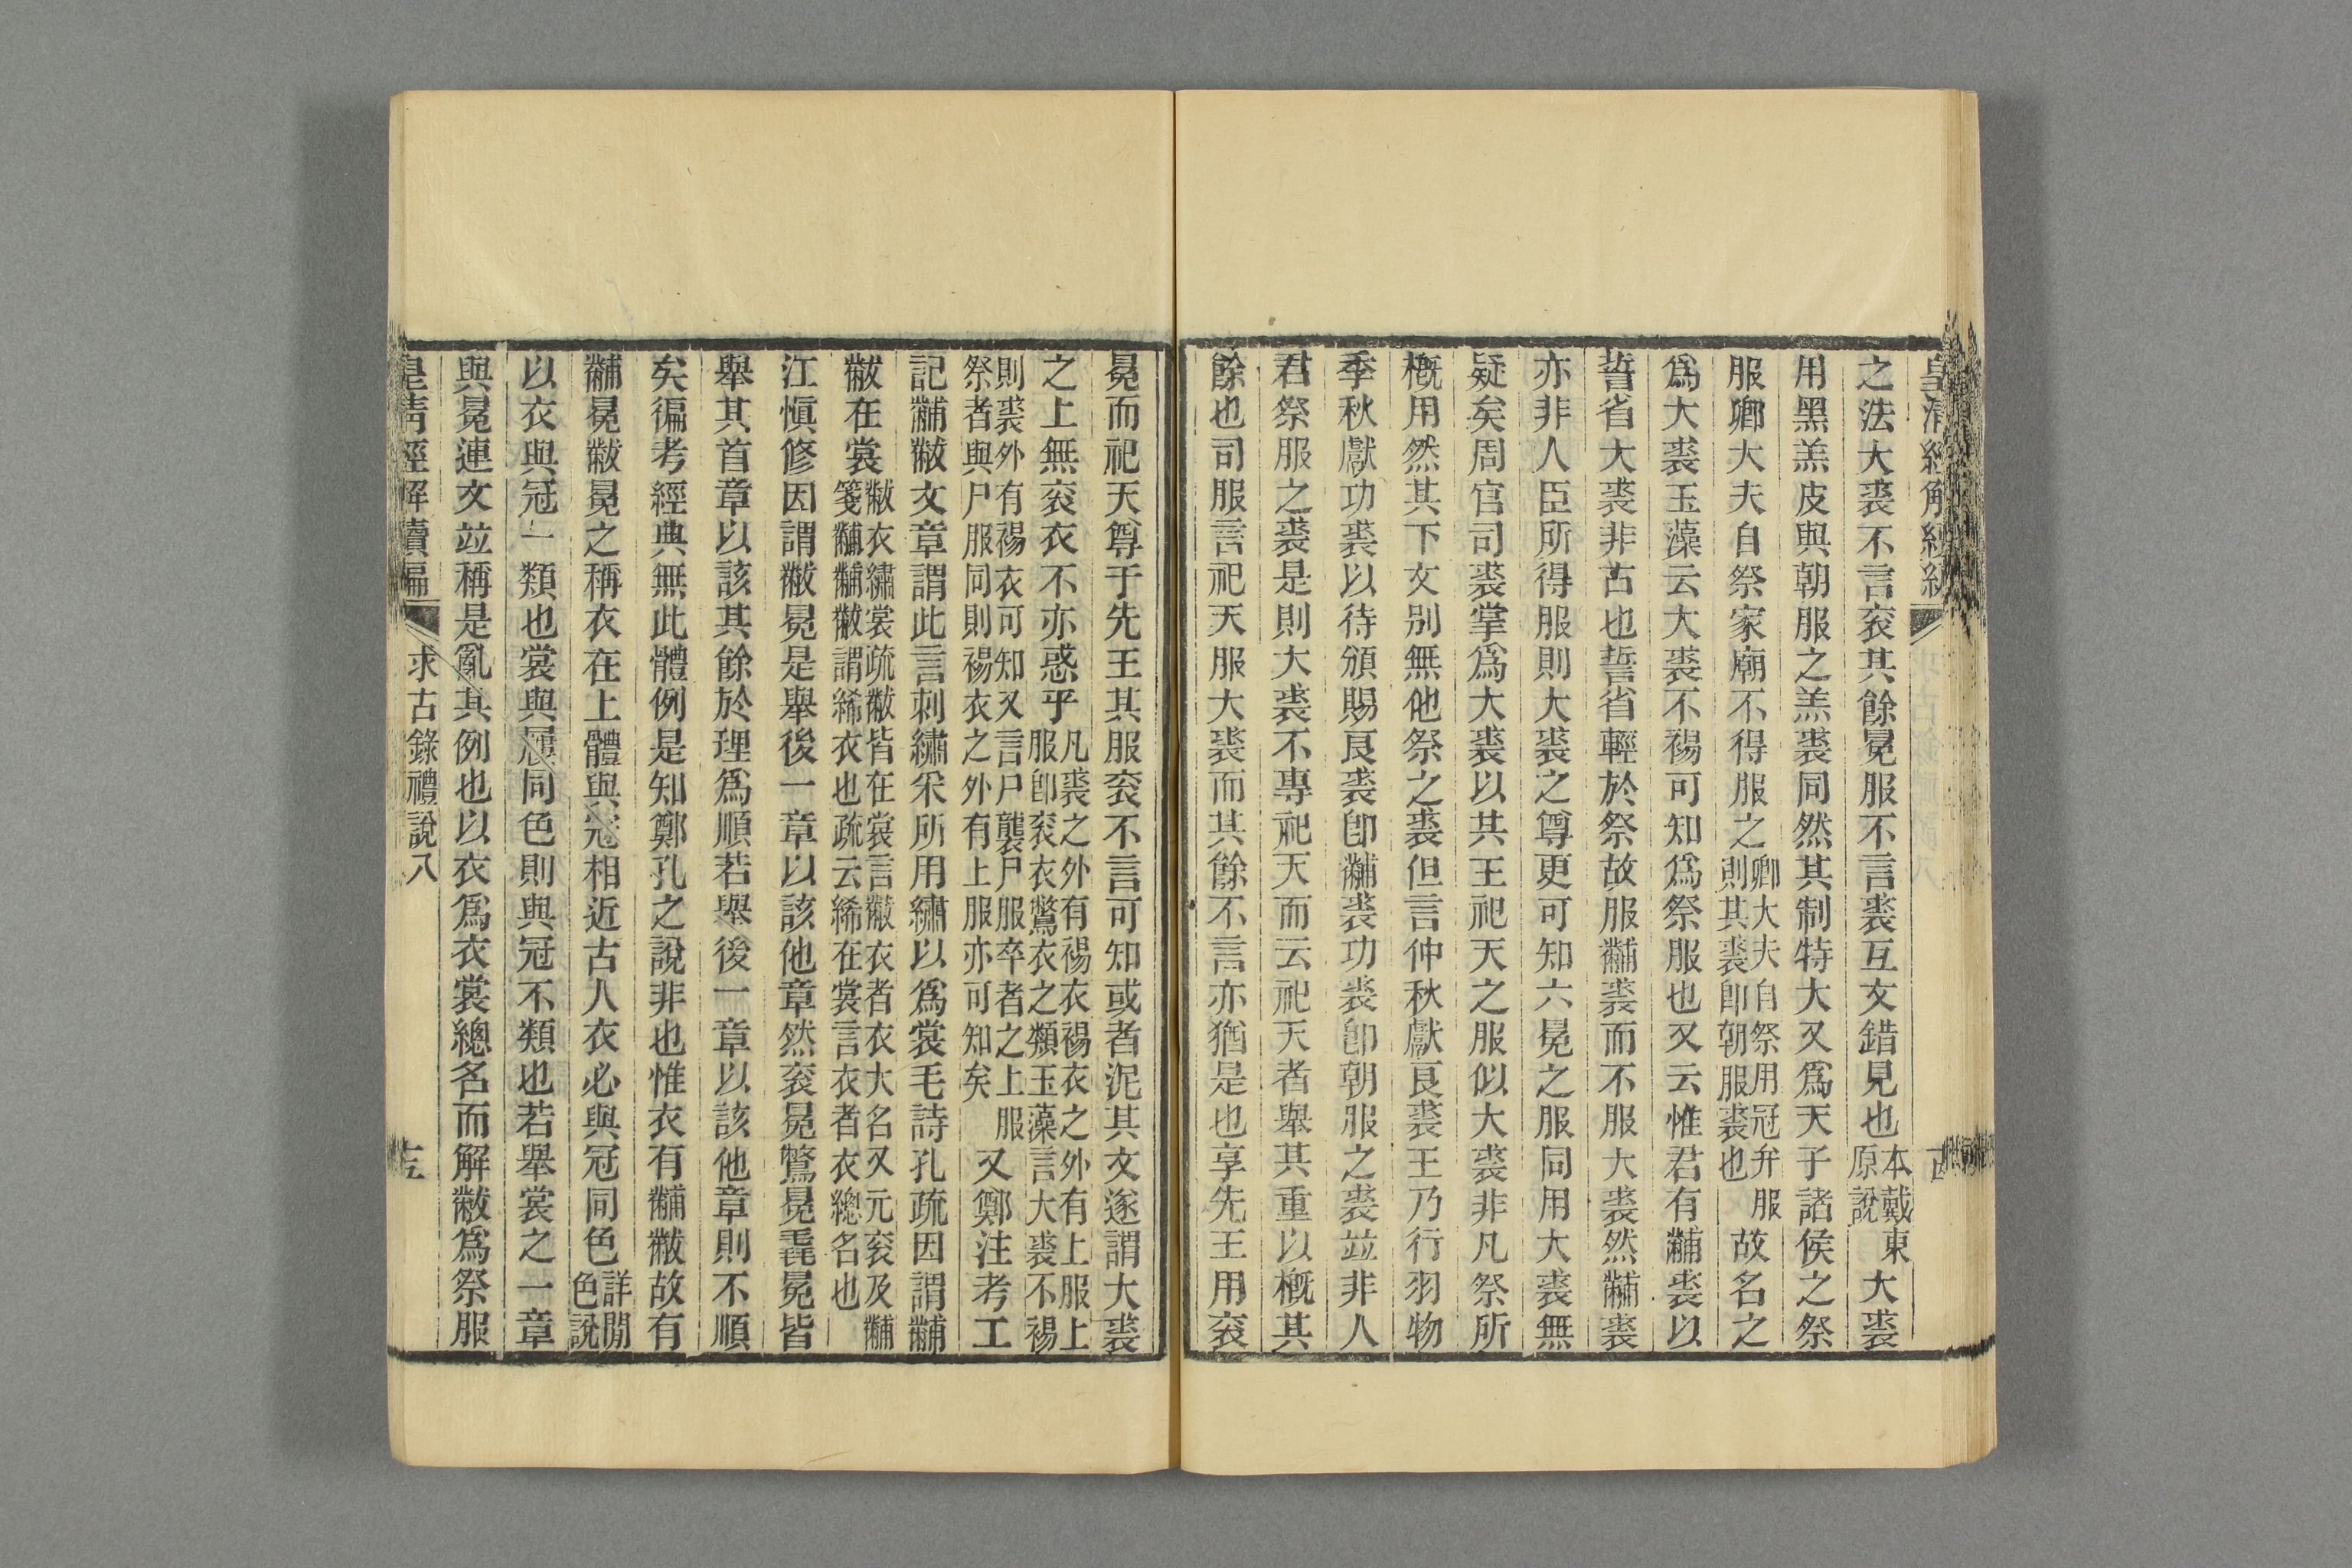 皇清經解續編
之法大裘不言衮其餘冕服不言裘互文錯見也本戴東原說大裘
用黑羔皮與朝服之羔裘同然其制特大又爲天子諸侯之祭
服卿大夫自祭家廟不得服之卿大夫自祭用冠弁服則其裘卽朝服裘也故名之
爲大裘玉藻云大裘不裼可知爲祭服也又云惟君有黼裘以
誓省大裘非古也誓省輕於祭故服黼裘而不服大裘然黼裘
亦非人臣所得服則大裘之尊更可知六冕之服同用大裘無
疑矣周官司裘掌爲大裘以共王祀天之服似大裘非凡祭所
槪用然其下文別無他祭之裘但言仲秋獻良裘王乃行羽物
季秋獻功裘以待頒賜良裘卽黼裘功裘卽朝服之裘竝非人
君祭服之裘是則大裘不專祀天而云祀天者舉其重以槪其
餘也司服言祀天服大裘而其餘不言亦猶是也享先王用衮
冕而祀天尊于先王其服衮不言可知或者泥其文遂謂大裘
之上無衮衣不亦惑乎凡裘之外有裼衣裼衣之外有上服上服卽衮衣鷩衣之類玉藻言大裘不裼
則裘外有裼衣可知又言尸襲尸服卒者之上服祭者與尸服同則裼衣之外有上服亦可知矣又鄭注考工
記黼黻文章謂此言刺繡采所用繡以爲裳毛詩孔疏因謂黼
黻在裳黻衣繡裳疏黻皆在裳言黻衣者衣大名又元衮及黼箋黼黼黻謂絺衣也疏云絺在裳言衣者衣總名也
江愼修因謂黻冕是舉後一章以該他章然衮冕鷩冕毳冕皆
舉其首章以該其餘於理爲順若舉後一章以該他章則不順
矣徧考經典無此體例是知鄭孔之說非也惟衣有黼黻故有
黼冕黻冕之稱衣在上體與冠相近古人衣必與冠同色詳閒色說
以衣與冠一類也裳與屨同色則與冠不類也若舉裳之一章
與冕連文竝稱是亂其例也以衣爲衣裳總名而解黻爲祭服
皇清經解續編 求古錄禮說八